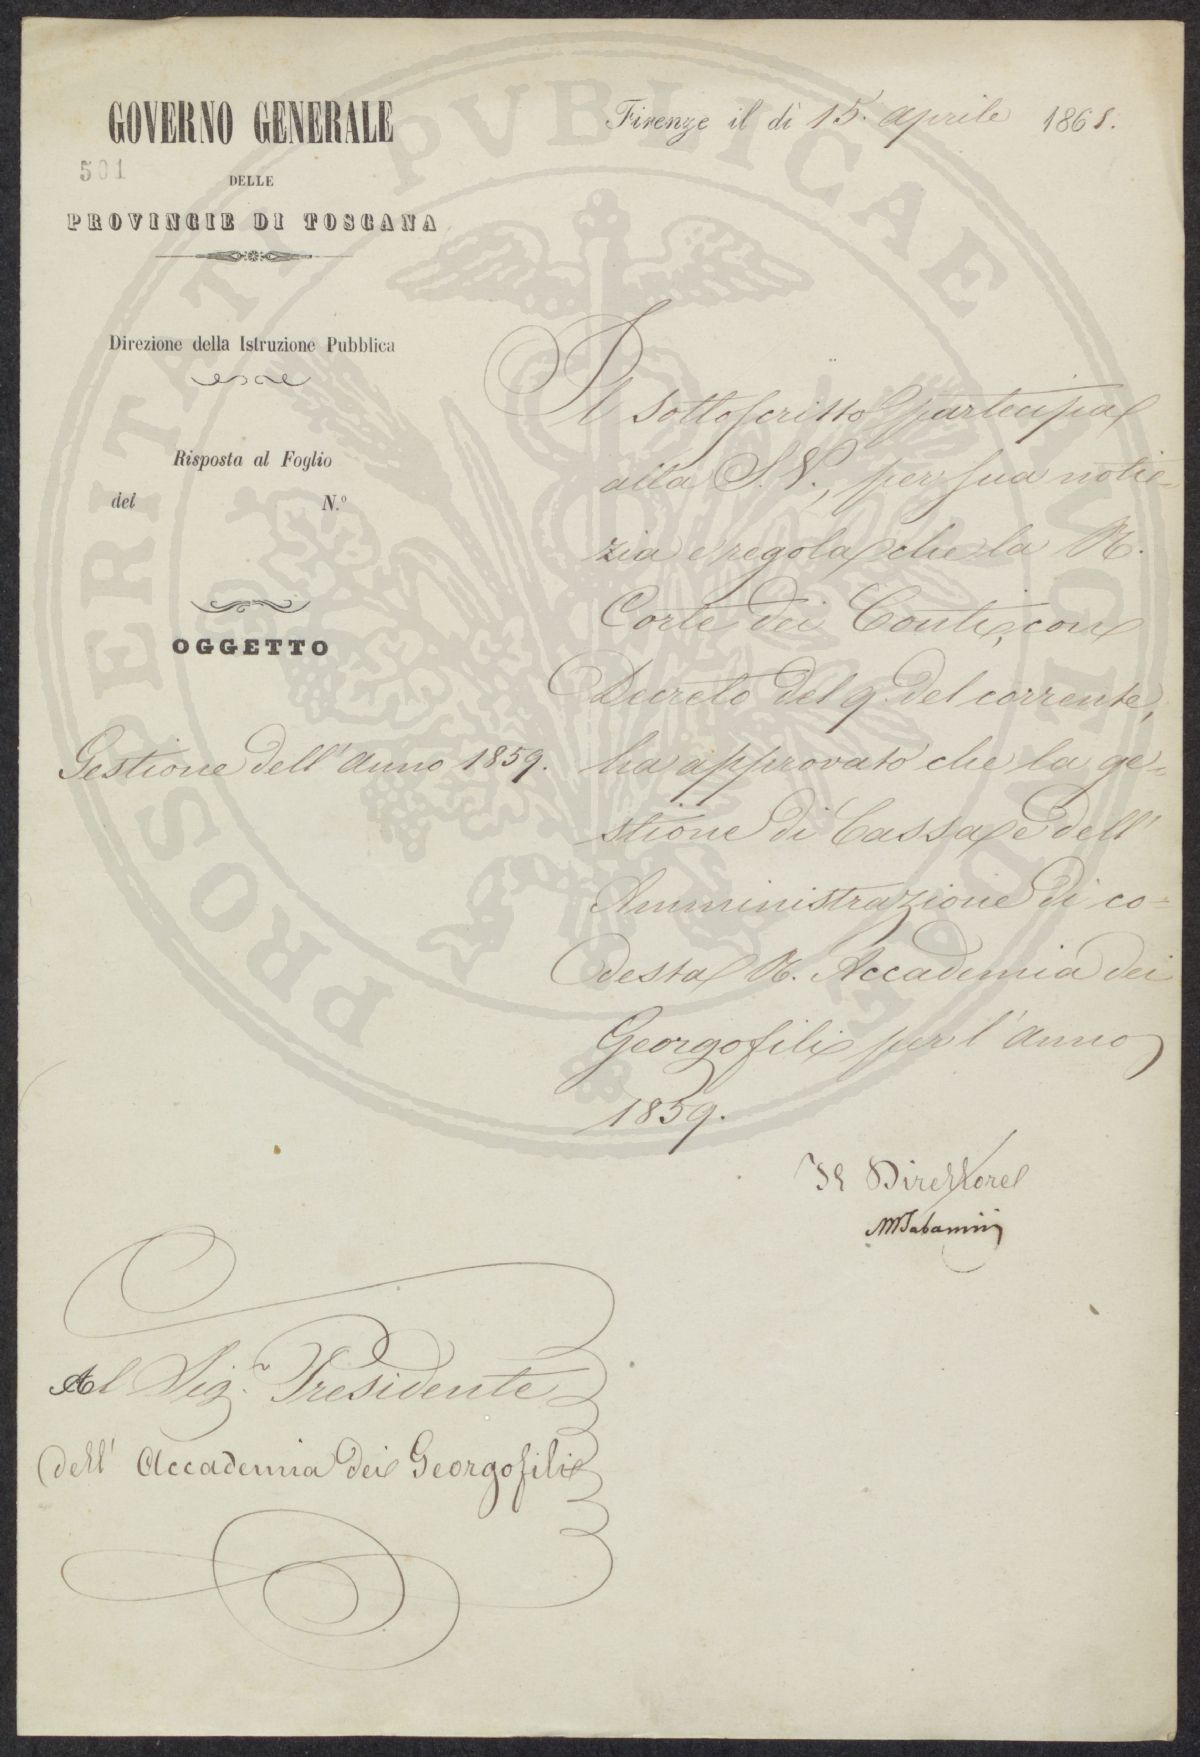 GOVERNO GENERALE
501
DELLE
PROVINCIE DI TOSCANA
Direzione della Istruzione Pubblica
Risposta al Foglio
del N.º
OGGETTO
Gestione dell' Anno 1859.
Firenze il dì 15. Aprile 1861.
Il sottoscritto partecipa
alla S.V., per sua noti=
zia e regola che la R.
Corte dei Conti, con
Decreto del 9. del corrente,
ha approvato che la ge=
stione di Cassa e dell'
Amministrazione di co=
desta R. Accademia dei
Georgofili per l'anno
1859.
Il Direttore
MTabarrini
Al Sig.r Presidente
dell' Accademia dei Georgofili
PROSPERITATI PVBLICAE AVGENDAE